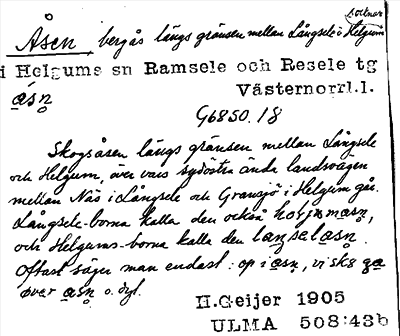 socknar
Åsen, bergås längs gränsen mellan Långsele i Helgum
i Helgums sn Ramsele och Resele tg
åsn̥ Västernorrl.l.
Gb850.18
Skogsåsen längs gränsen mellan Långsele
och Helgum, över vars sydöstra ända landsvägen
mellan Näs i Långsele och Gransjö i Helgum går.
Långsele-borna kalla den också
och Helgums-borna kalla den
Oftast säger man endast: op i åsn̥, vi ska
över åsn̥ o. dyl.
H.Geijer 1905
ULMA 508:43b